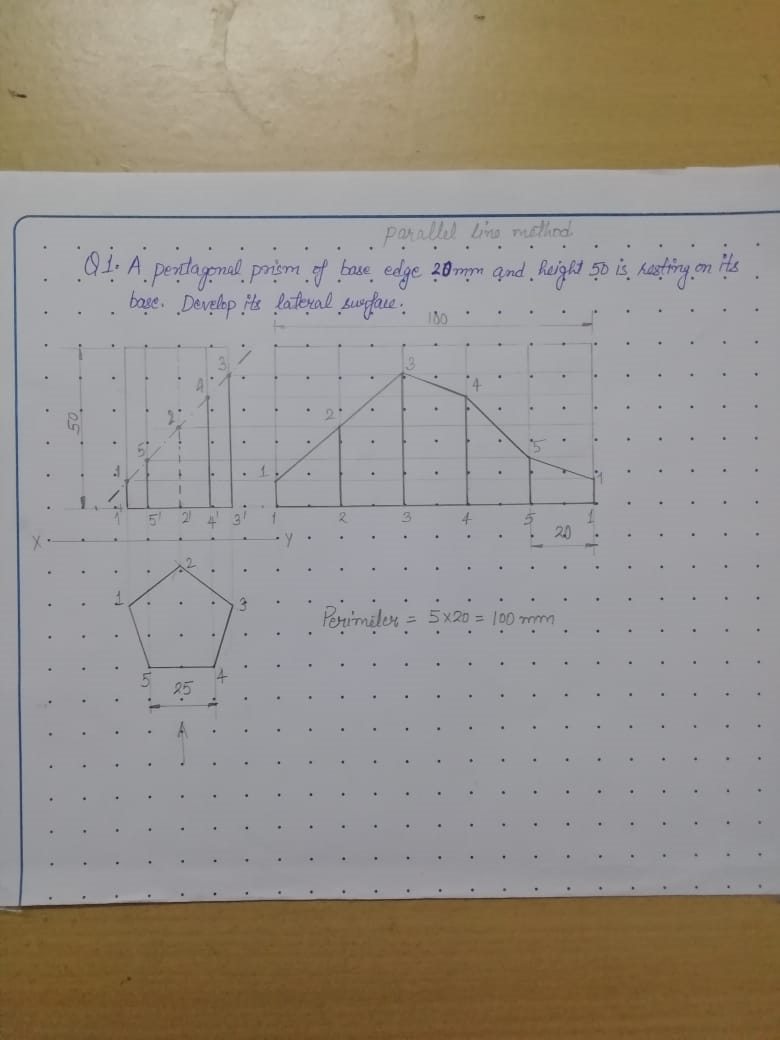 parallel line method
Q1. A pentagonal prism of base edge 20mm and height 50 is resting on its
base. Develop its lateral surface.
100
50
3
4
2
5
1
3
4
2
5
1
1
1' 5' 2' 4' 3'
1 2 3 4 5 1
20
X Y
2
1
3
5 4
25
Perimeter = 5×20 = 100 mm